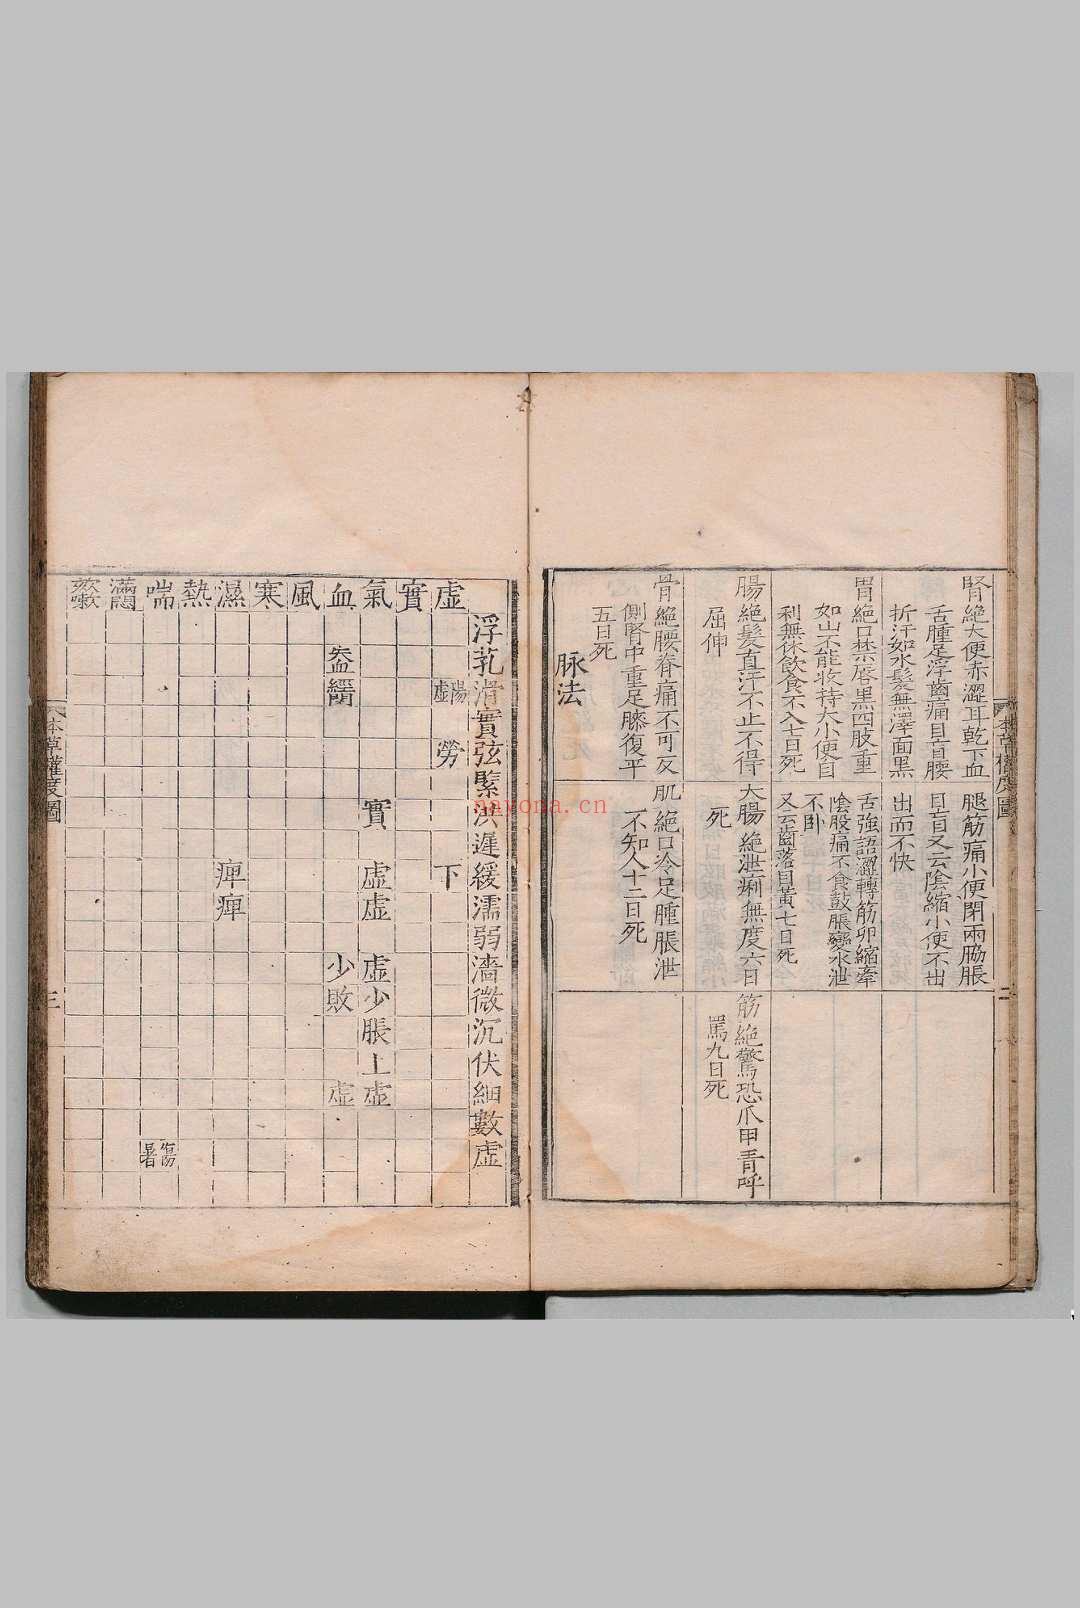 腎絶大便赤澀耳乾下血
舌腫足浮齒痛目盲腰
折汗如水髮無澤面黑
胃絶口噤唇黑四肢重
如山不能收持大小便自
利無休飲食不入七日死
腸絶髮直汗不止不得
屈伸
骨絶腰脊痛不可反
側腎中重足膝復平
五日死
脉法
腿筋痛小便閉兩脇脹
目盲又云陰縮小便不出
出而不快
舌強語澀轉筋卵縮牽
陰股痛不食鼓脹變水泄
不卧
又云齒落目黃七日死
大腸絶泄痢無度六日
死
肌絶口冷足腫脹泄
不知人十二日死
筋絶驚恐爪甲青呼
罵九日死
本草權度圖
二
浮芤滑實弦緊洪遲緩濡弱濇微沉伏細數虛
虛
陽虛
勞
下
實
氣
實
虛虛
虛少脹上虛
血
失血
少敗
虛
風
寒
濕
痺痺
熱
喘
傷暑
滿悶
欬嗽
本草權度圖
三
nayona.cn